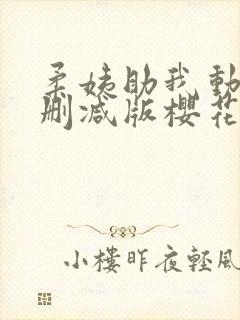 柔姨助我動
删减版櫻花
小樓昨夜輕風